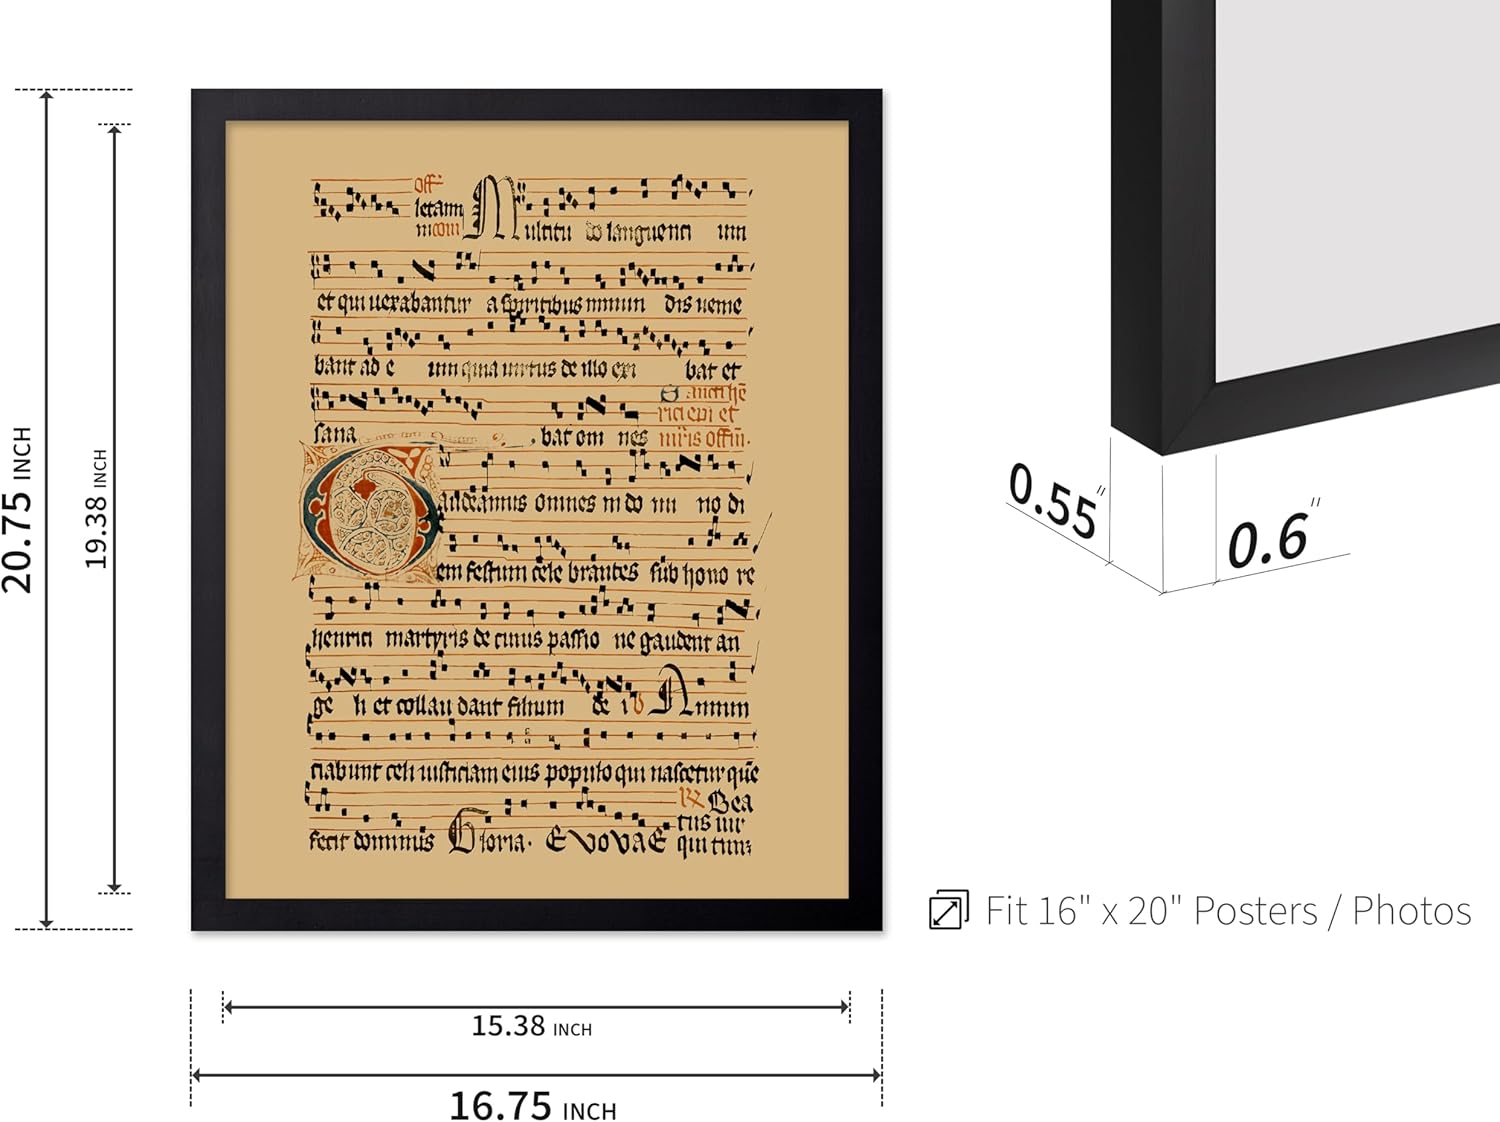 20.75 INCH
19.38 INCH
off
letanı
Multitu do languenti um
et qui uexabantur a spiritibus inmun dis ueniє
bant ad e um quia uirtus de illo exi bat et
sana bat om nes
Sancti he
rici epi et
m̄ris offm̄.
audeamus omnes in do mi no di
em festum cele brantes sub hono re
henrici martyris de cuius passio ne gaudent an
ge li et collau dant filium de i Annun
ciabunt celi iusticiam eius populo qui nascetur quē
fecit dominus Gloria. EVOVAE
R Bea
tus uir
qui tim
15.38 INCH
16.75 INCH
0.55"
0.6"
Fit 16" x 20" Posters / Photos